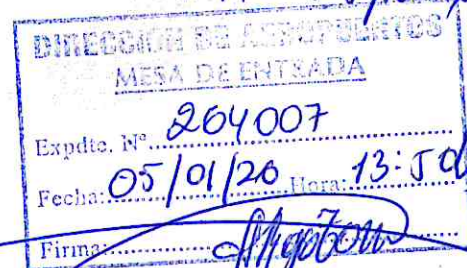 DIRECCION DE AEROPUERTOS
MESA DE ENTRADA
Expdte. Nº 264007
Fecha: 05/01/26 Hora: 13:50
Firma: